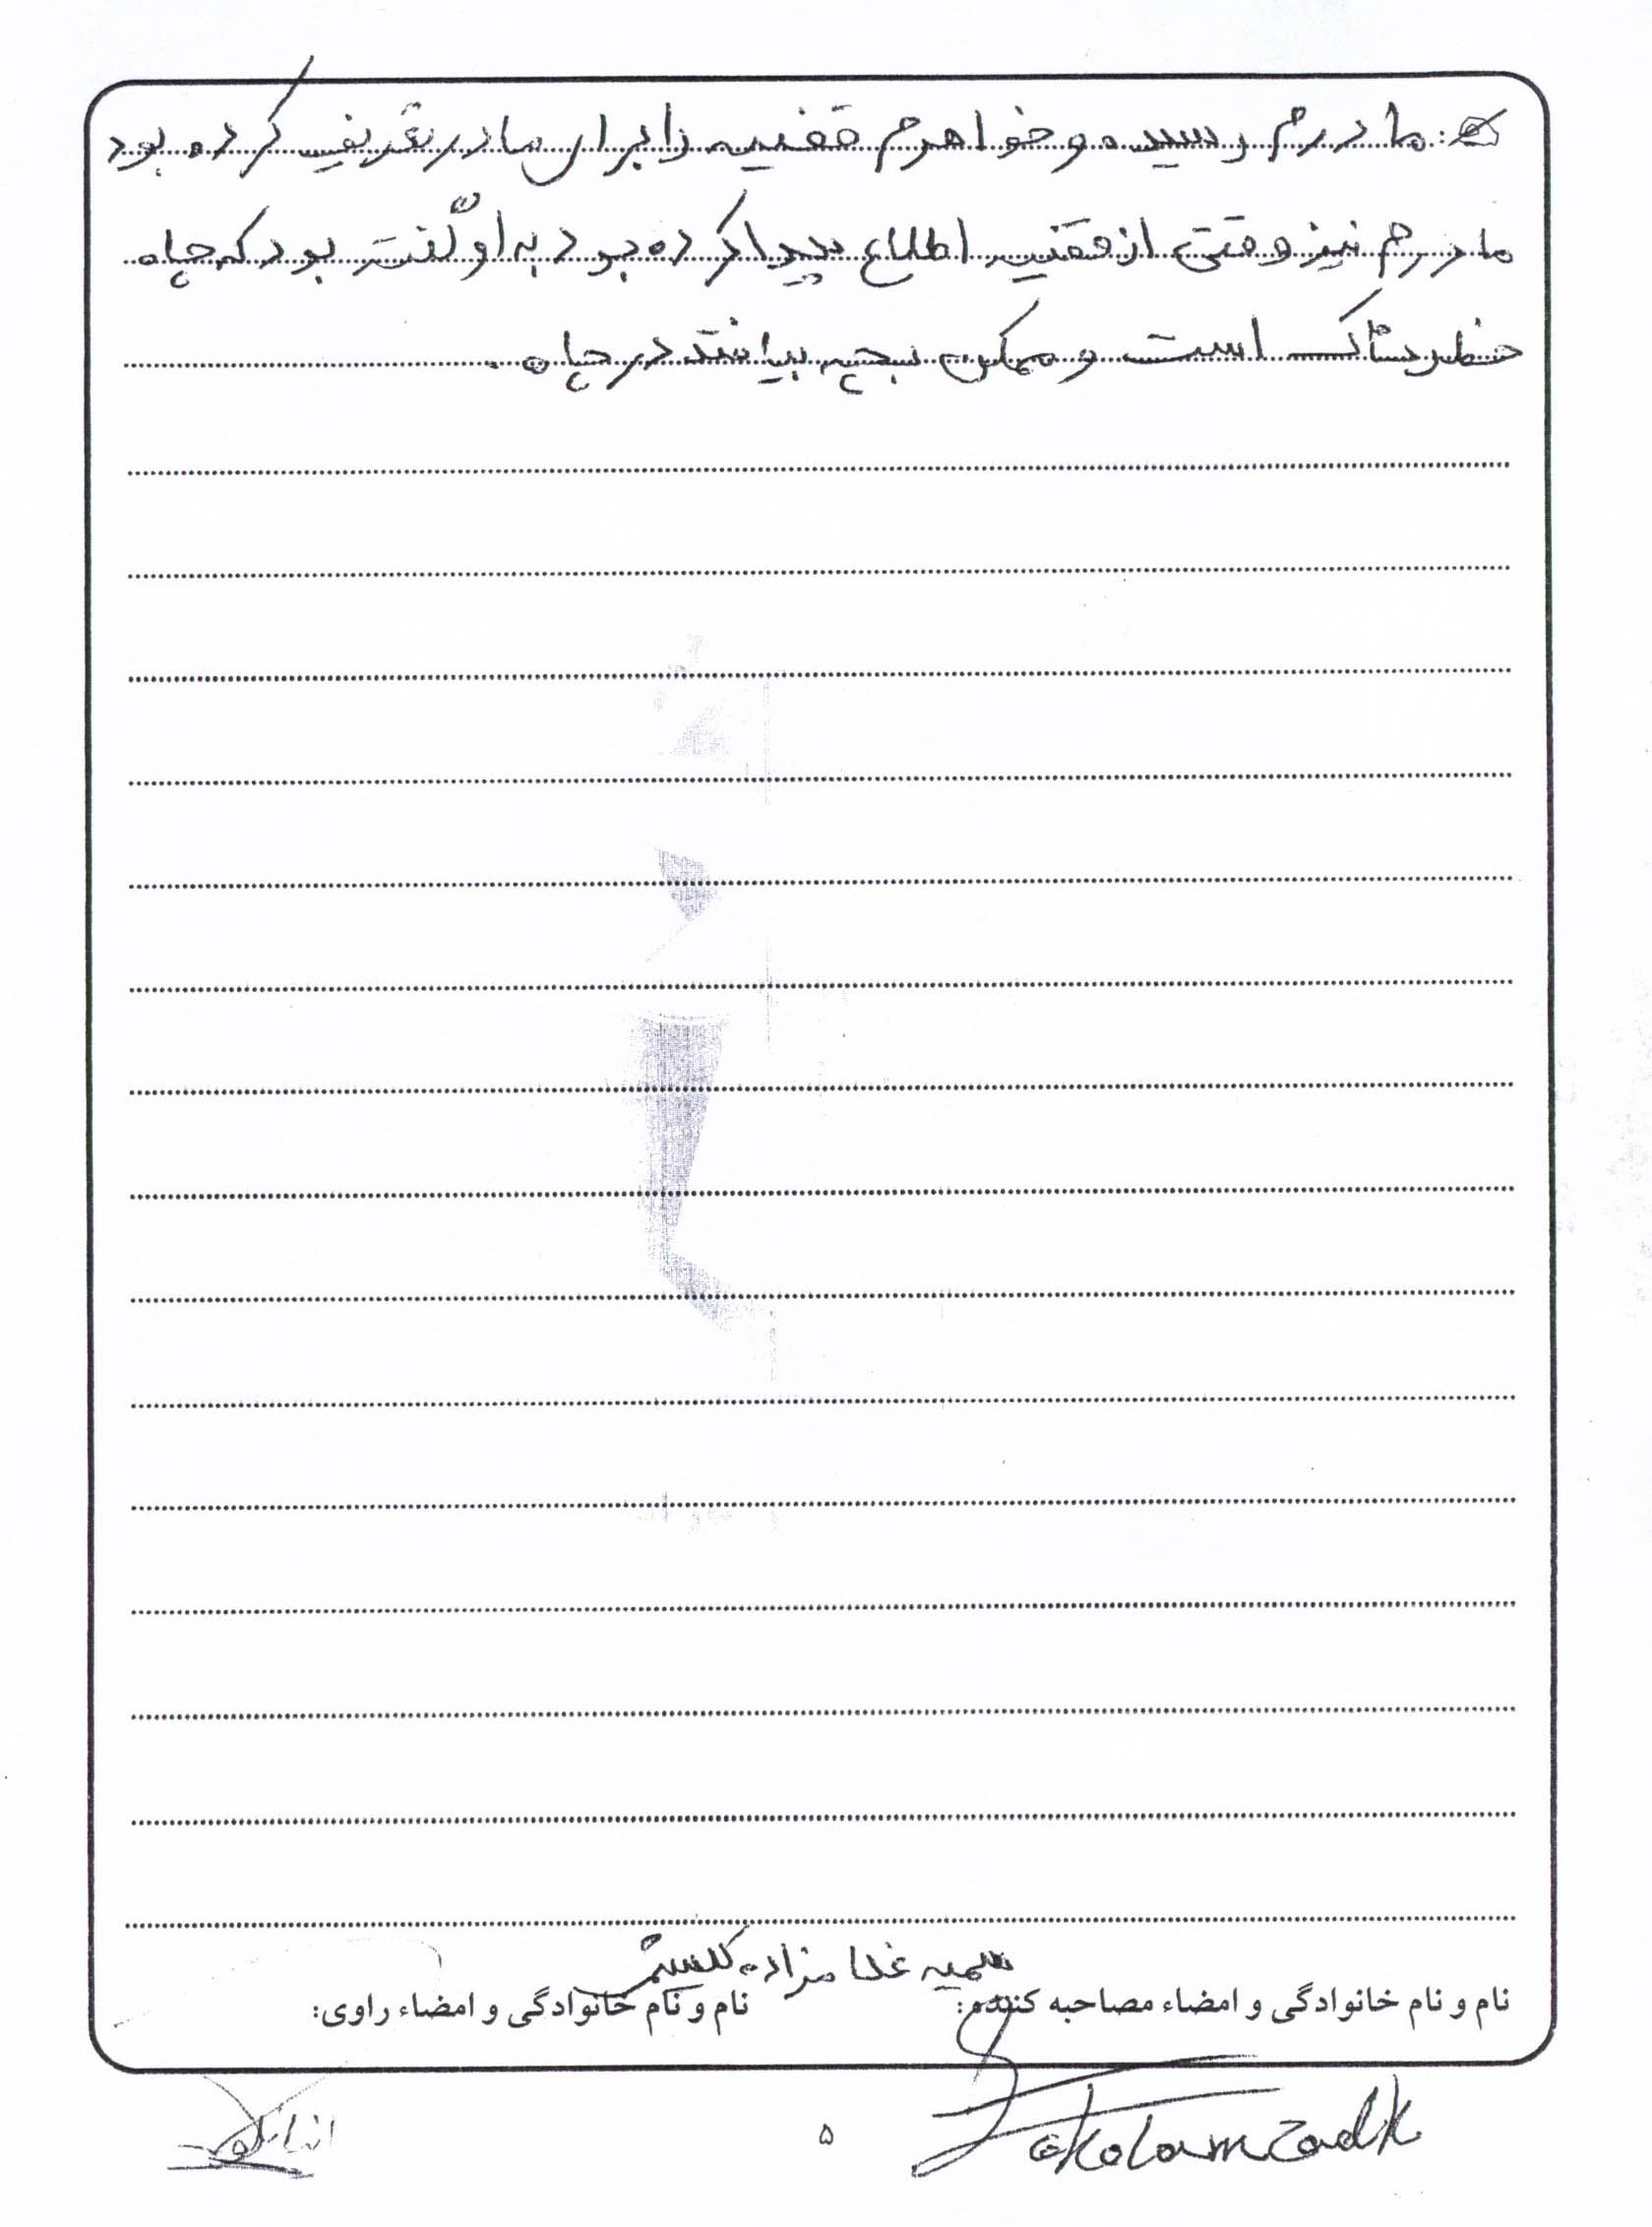 : مادرم رسیده و خواهرم قضیه را برای مادر تعریف کرده بود
مادرم نیز وقتی از قضیه اطلاع پیدا کرده بود به او گفته بود که چاه
خطرناک است و ممکن بچه بیافتد در چاه .
سمیه غلامزاده
نام و نام خانوادگی و امضاء مصاحبه کننده:
نام و نام خانوادگی و امضاء راوی:
۵